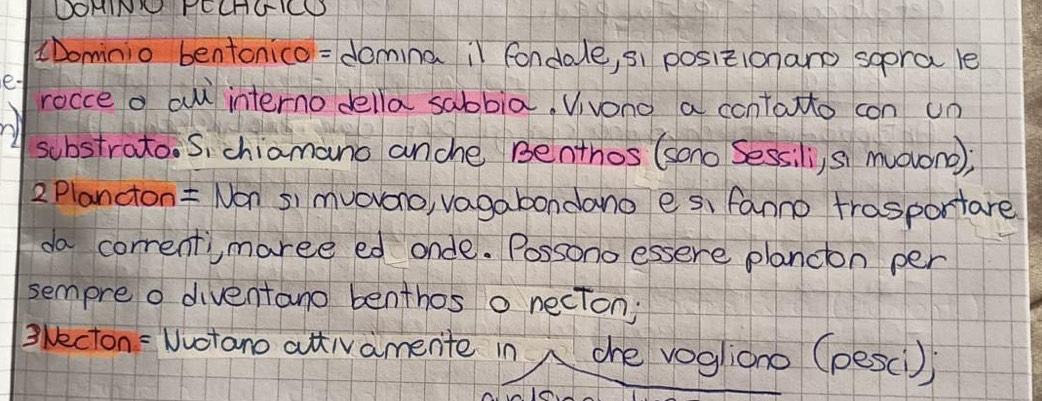 DOMINIO PELAGICO
1Dominio bentonico = domina il fondale, si posizionano sopra le
rocce o all'interno della sabbia. Vivono a contatto con un
substrato. Si chiamano anche Benthos (sono Sessili, si muovono);
2 Plancton = Non si muovono, vagabondano e si fanno trasportare
da correnti, maree ed onde. Possono essere plancton per
sempre o diventano benthos o necton;
3Necton = Nuotano attivamente in che vogliono (pesci);